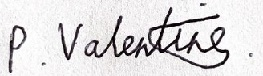 P. Valentine.